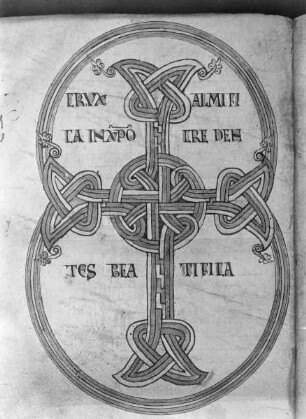 CRVX ALMIFI
CA IN X̅P̅O̅ CRE DEN
TES BEA TIFICA